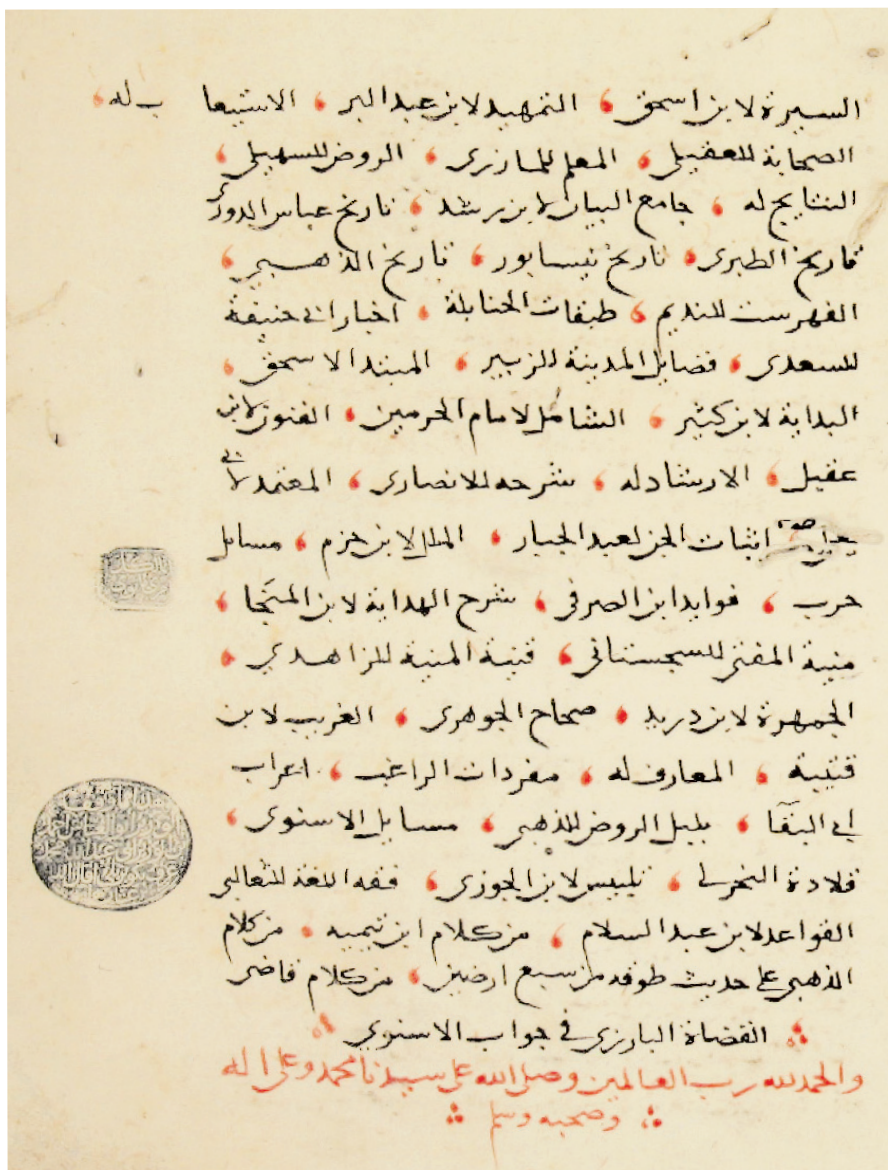 السيرة لابن اسحق، التمهيد لابن عبد البر، الاستيعاب له،
الصحابة للعقيلي، المعلم للمازري، الروض للسهيلي،
النتايج له، جامع البيان لابن رشد، تاريخ عباس الدوري
تاريخ الطبري، تاريخ نيسابور، تاريخ الذهبي،
الفهرست للنديم، طبقات الحنابلة، اخبار ابي حنيفة
للسعدي، فضايل المدينة للزبير، المبتدا لاسحق،
البداية لابن كثير، الشامل لامام الحرمين، الفنون لابن
عقيل، الارشاد له، شرحه للانصاري، المعتمد لابي
يعلى، اثبات الجن لعبد الجبار، الملل لابن حزم، مسايل
حرب، فوايد ابن الصرفي، شرح الهداية لابن المنجا،
منية المفتي للسجستاني، قنية المنية للزاهدي،
الجمهرة لابن دريد، صحاح الجوهري، الغريب لابن
قتيبة، المعارف له، مفردات الراغب، اعراب
ابي البقا، بلبل الروض للذهبي، مسايل الاسنوي،
قلادة النحر لي، تلبيس لابن الجوزي، فقه اللغة للثعالبي
القواعد لابن عبد السلام، من كلام ابن تيميه، من كلام
الذهبي على حديث طوقه من سبع ارضين، من كلام قاضي
القضاة البارزي في جواب الاسنوي
والحمد لله رب العالمين وصلى الله على سيدنا محمد وعلى اله
وصحبه وسلم